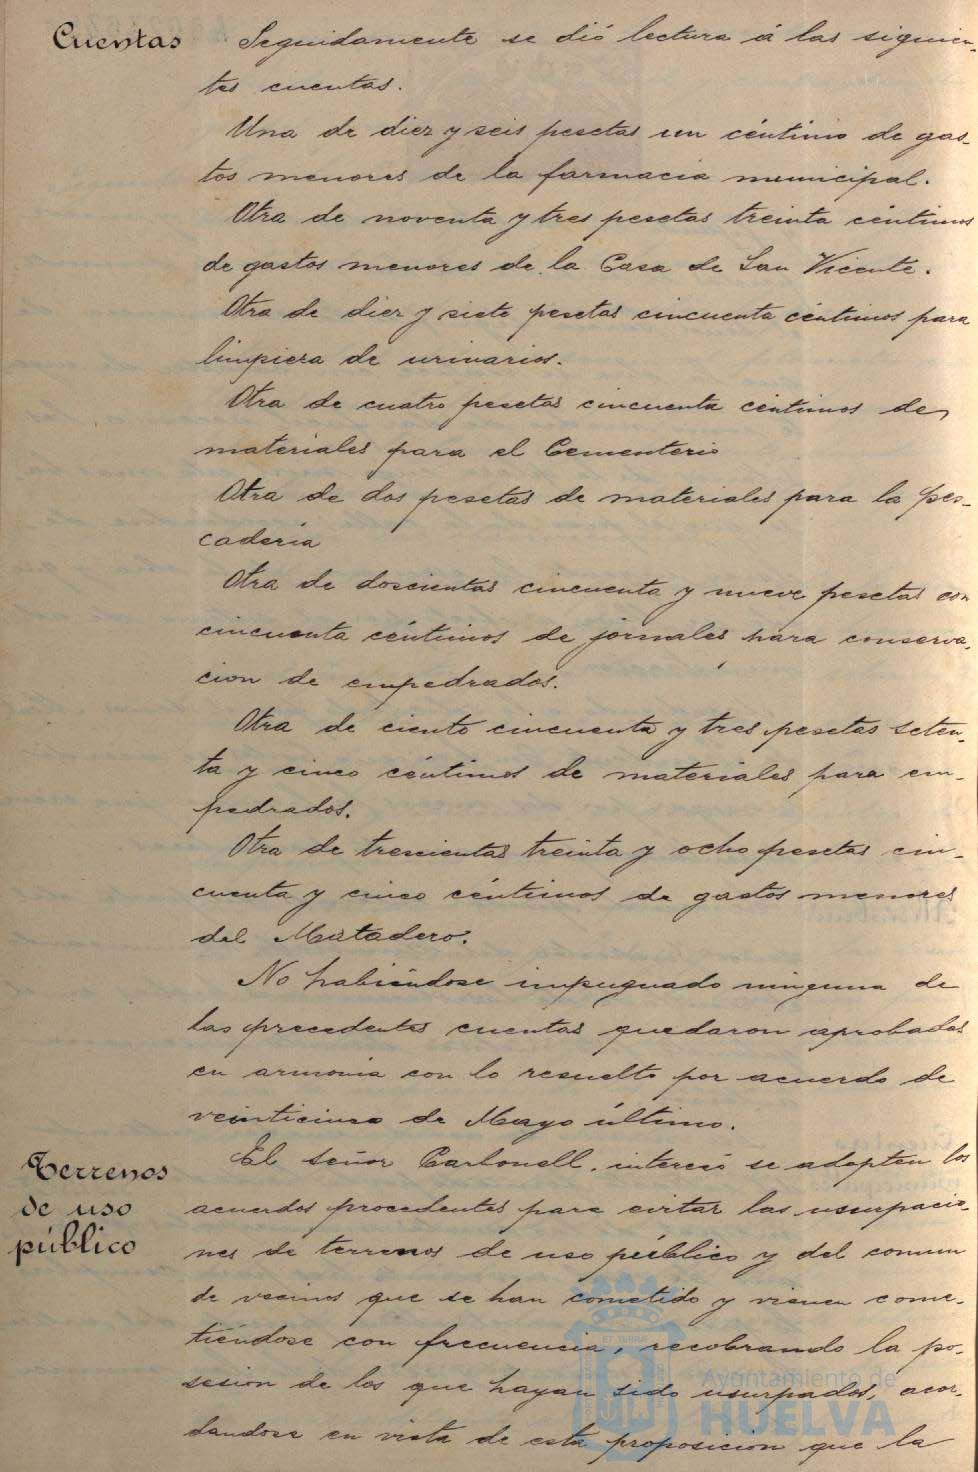 Cuentas Seguidamente se dió lectura á las siguien-
tes cuentas.
Una de diez y seis pesetas un céntimo de gas-
tos menores de la farmacia municipal.
Otra de noventa y tres pesetas treinta céntimos
de gastos menores de la Casa de San Vicente.
Otra de diez y siete pesetas cincuenta céntimos para
limpieza de urinarios.
Otra de cuatro pesetas cincuenta céntimos de
materiales para el Cementerio
Otra de dos pesetas de materiales para la pes-
cadería
Otra de doscientas cincuenta y nueve pesetas con
cincuenta céntimos de jornales para conserva-
cion de empedrados.
Otra de ciento cincuenta y tres pesetas seten-
ta y cinco céntimos de materiales para em-
pedrados.
Otra de trescientas treinta y ocho pesetas cin-
cuenta y cinco céntimos de gastos menores
del Matadero.
No habiéndose impugnado ninguna de
las precedentes cuentas quedaron aprobadas
en armonia con lo resuelto por acuerdo de
veinticinco de Mayo último.
Terrenos
de uso
público
El señor Carbonell, interesó se adopten los
acuerdos procedentes para evitar las usurpacio-
nes de terrenos de uso público y del comun
de vecinos que se han cometido y vienen come-
tiéndose con frecuencia, recobrando la po-
sesion de los que hayan sido usurpados, acor-
dandose en vista de esta proposicion que la
Ayuntamiento de
HUELVA